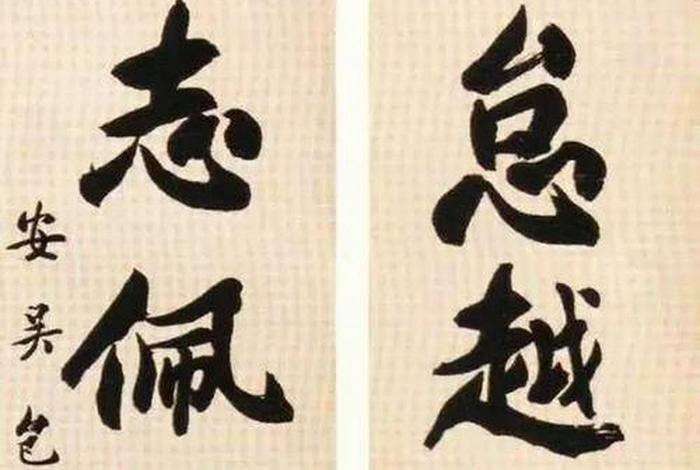 怠越
志佩
安吴包